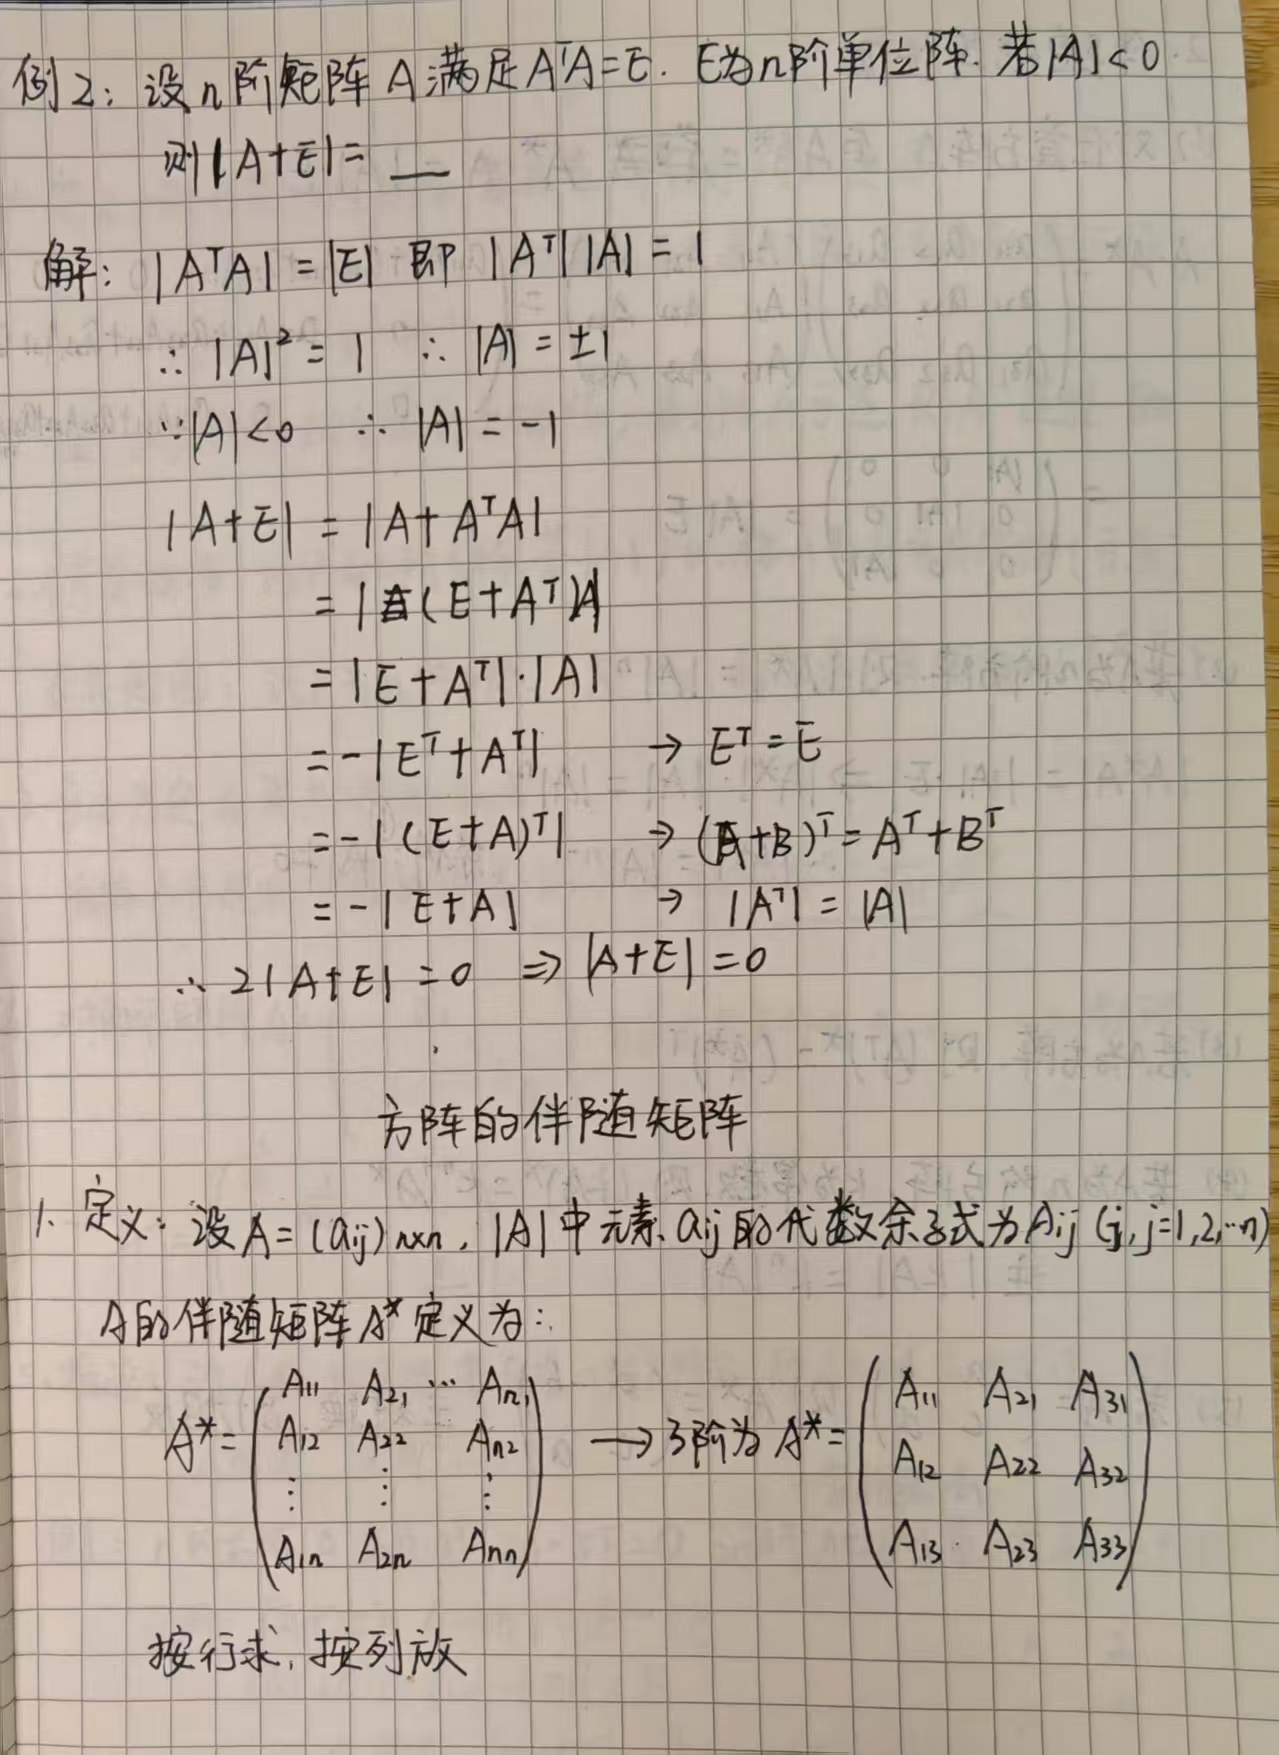 例2: 设n阶矩阵 A 满足 AᵀA=E. E为n阶单位阵. 若|A|<0
则|A+E|= __
解: |AᵀA| = |E| 即 |Aᵀ||A| = 1
∴ |A|² = 1 ∴ |A| = ±1
∵|A|<0 ∴ |A| = -1
|A+E| = |A+AᵀA|
= |(E+Aᵀ)A|
= |E+Aᵀ|·|A|
= -|Eᵀ+Aᵀ| → Eᵀ=E
= -|(E+A)ᵀ| → (A+B)ᵀ=Aᵀ+Bᵀ
= -|E+A| → |Aᵀ| = |A|
∴ 2|A+E| = 0 ⇒ |A+E| = 0
方阵的伴随矩阵
1. 定义: 设A=(aij)n×n, |A|中元素aij的代数余子式为Aij (i,j=1,2,…n)
A的伴随矩阵A*定义为:
A₁₁ A₂₁ … Aₙ₁ A₁₁ A₂₁ A₃₁
A*= A₁₂ A₂₂ Aₙ₂ → 3阶为 A*= A₁₂ A₂₂ A₃₂
⋮ ⋮ ⋮
A₁ₙ A₂ₙ Aₙₙ A₁₃ A₂₃ A₃₃
按行求, 按列放